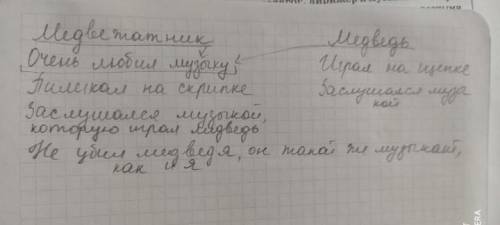 Медвежатник Медведь
Очень любил музыку Играл на щепке
Пиликал на скрипке Заслушался музы
кой
Заслушался музыкой,
которую играл медведь
Не убил медведя, он такой же музыкант,
как и я